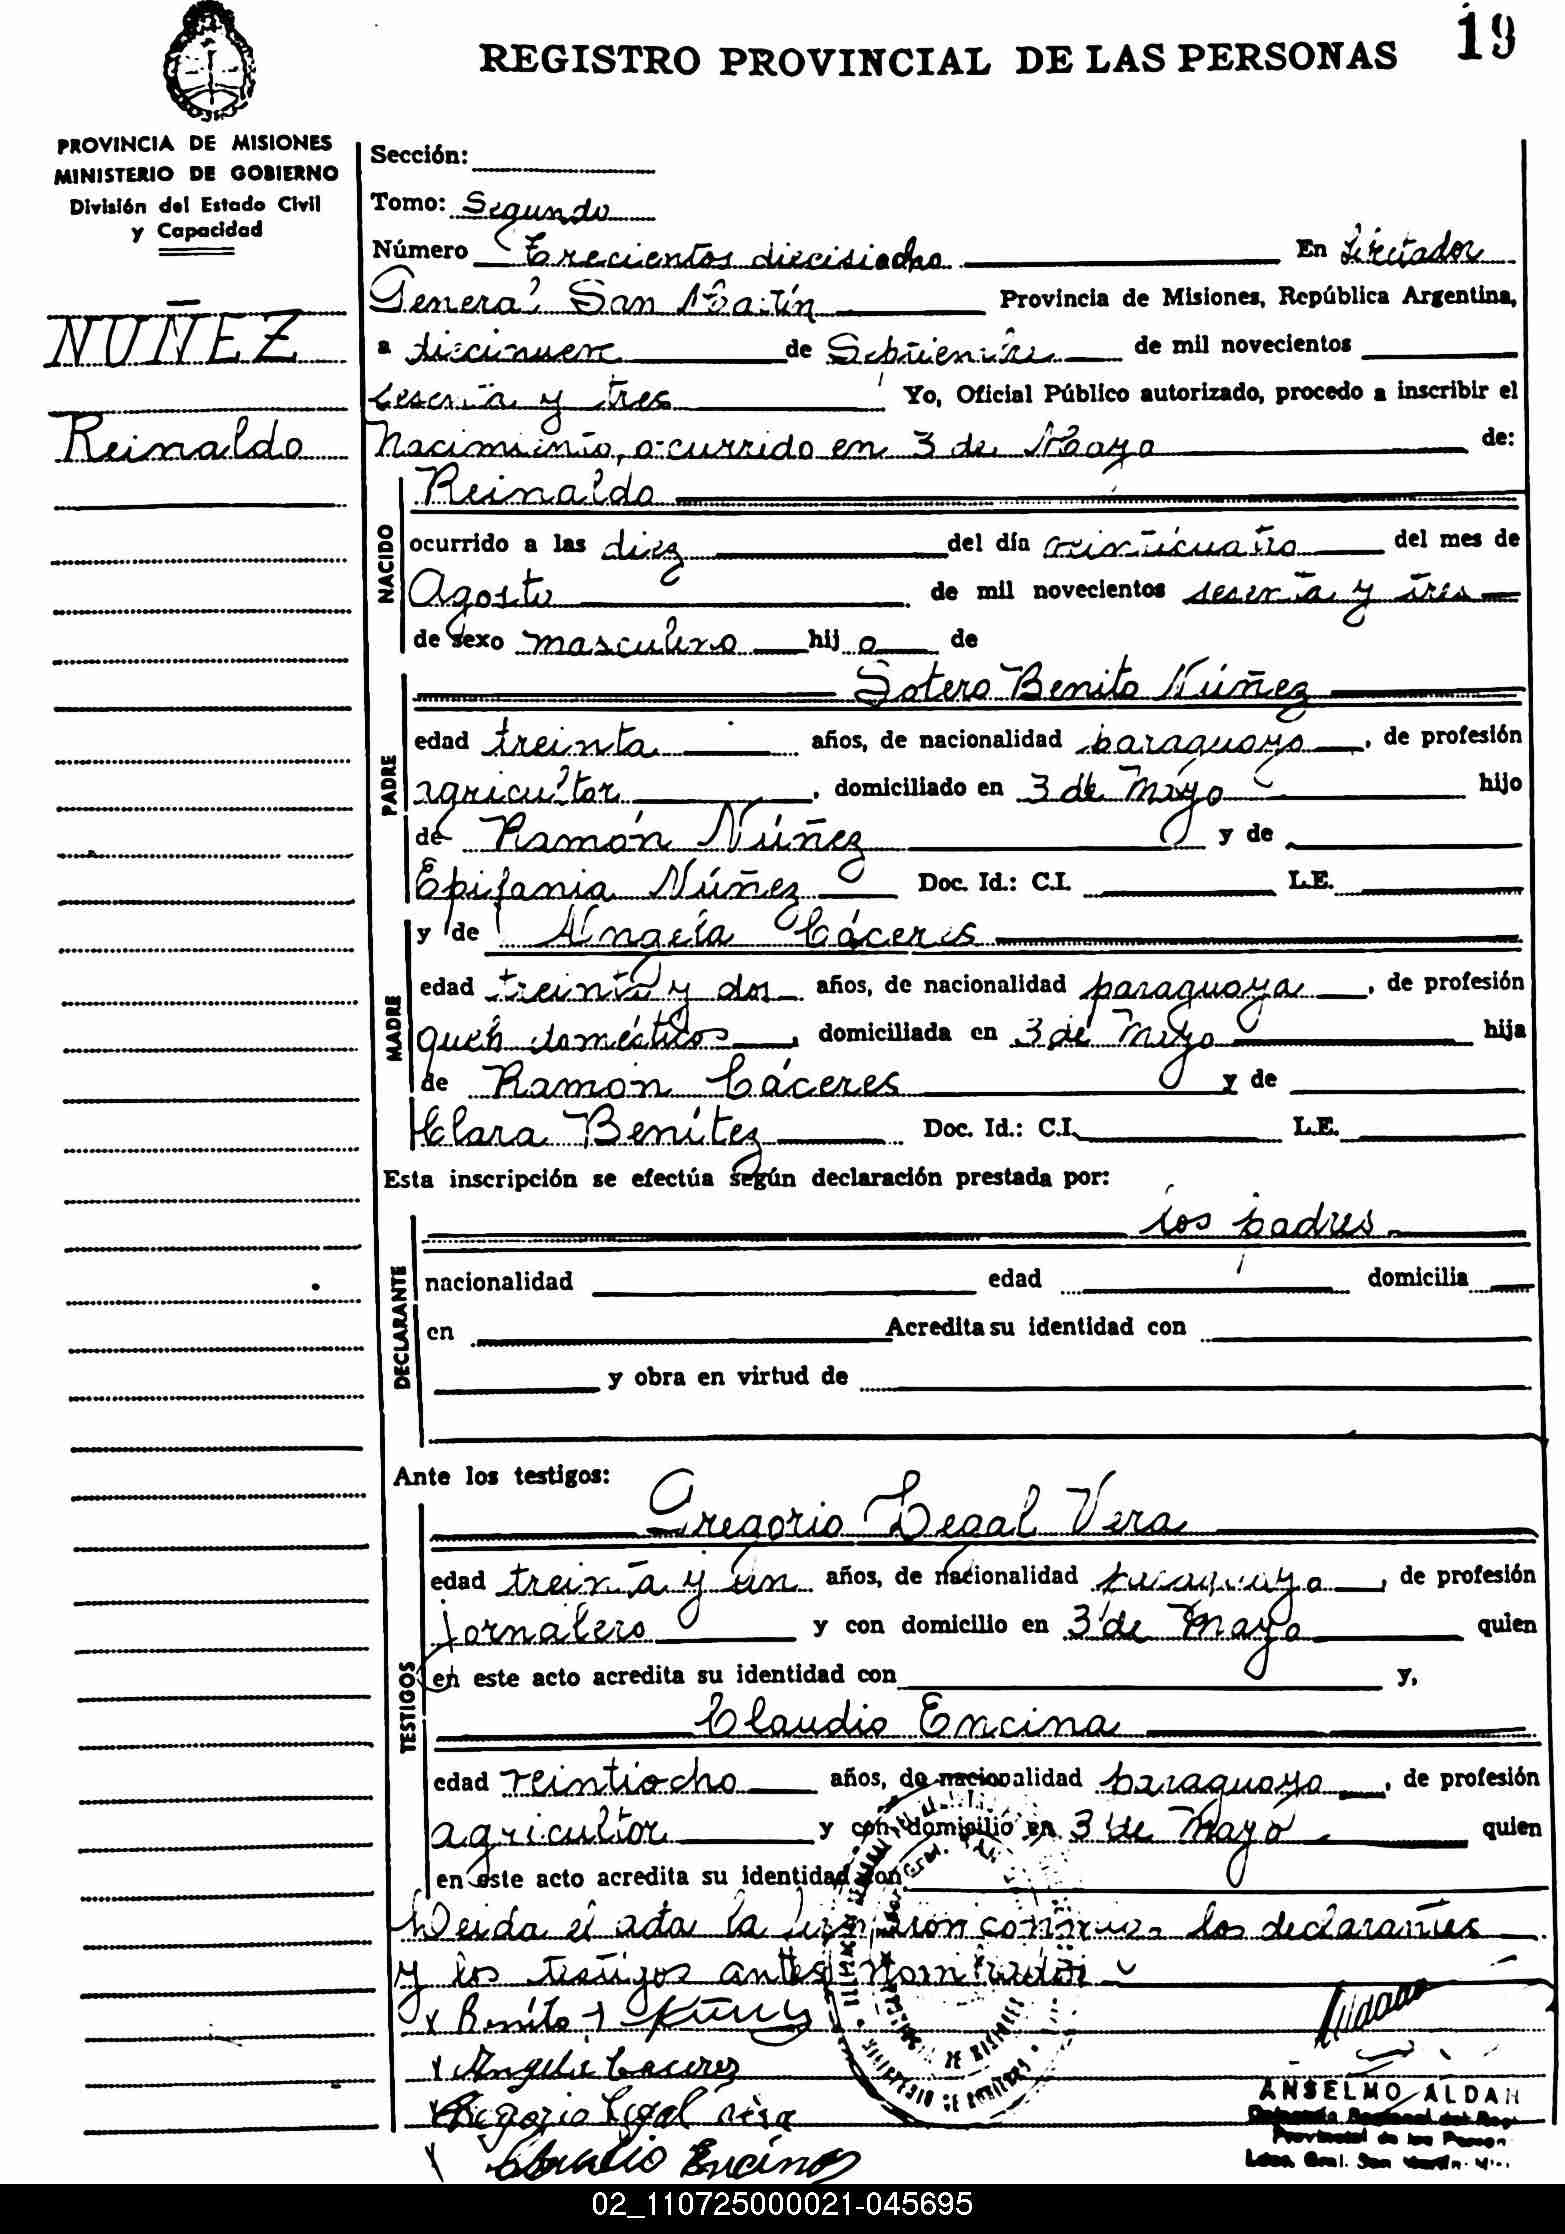 REGISTRO PROVINCIAL DE LAS PERSONAS 19
PROVINCIA DE MISIONES
MINISTERIO DE GOBIERNO
División del Estado Civil
y Capacidad
NUÑEZ
Reinaldo
Sección:
Tomo: Segundo
Número Trecientos dieciseiocho En Libertador
General San Martín Provincia de Misiones, República Argentina,
a diecinueve de Septiembre de mil novecientos
sesenta y tres Yo, Oficial Público autorizado, procedo a inscribir el
Nacimiento, ocurrido en 3 de Mayo de:
NACIDO
Reinaldo
ocurrido a las diez del día veinticuatro del mes de
Agosto de mil novecientos sesenta y tres
de sexo masculino hijo de
PADRE
Sotero Benito Núñez
edad treinta años, de nacionalidad paraguayo, de profesión
agricultor, domiciliado en 3 de Mayo hijo
de Ramón Núñez y de
Epifania Núñez Doc. Id.: C.I. L.E.
MADRE
y de Angela Cáceres
edad treinta y dos años, de nacionalidad paraguaya, de profesión
queh domésticos, domiciliada en 3 de Mayo hija
de Ramón Cáceres y de
Clara Benítez Doc. Id.: C.I. L.E.
Esta inscripción se efectúa según declaración prestada por:
DECLARANTE
los padres
nacionalidad edad domicilia
en Acredita su identidad con
y obra en virtud de
Ante los testigos:
TESTIGOS
Gregorio Legal Vera
edad treinta y un años, de nacionalidad paraguayo, de profesión
jornalero y con domicilio en 3 de Mayo quien
en este acto acredita su identidad con y,
Claudio Encina
edad veintiocho años, de nacionalidad paraguayo, de profesión
agricultor y con domicilio en 3 de Mayo quien
en este acto acredita su identidad con
Leída el acta la firman conmigo los declarantes
y los testigos antes nombrados
x Benito
x Angela Caceres
x Gregorio Legal Vera
x Claudio Encina
ANSELMO ALDAN
Provincial de las Person
Ldor. Gral. San Martín
02_110725000021-045695